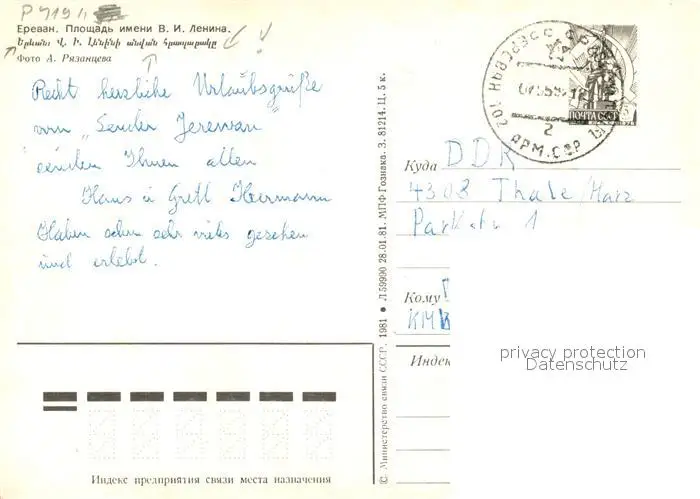 P 7191
Ереван. Площадь имени В. И. Ленина.
Երևան: Վ. Ի. Լենինի անվան հրապարակը
Фото А. Рязанцева
Recht herzliche Urlaubsgrüße
vom „Sender Jerewan"
senden Ihnen allen
Hans u Gretl Hermann
Haben schon sehr vieles gesehen
und erlebt.
Индекс предприятия связи места назначения
© Министерство связи СССР. 1981 • Л 59990 28.01.81. МПФ Гознака. З. 81214. Ц. 5 к.
ПОЧТА СССР
АРМ. ССР
2
Куда DDR
4308 Thale/Harz
Parkstr 1
Кому
Индек
privacy protection
Datenschutz